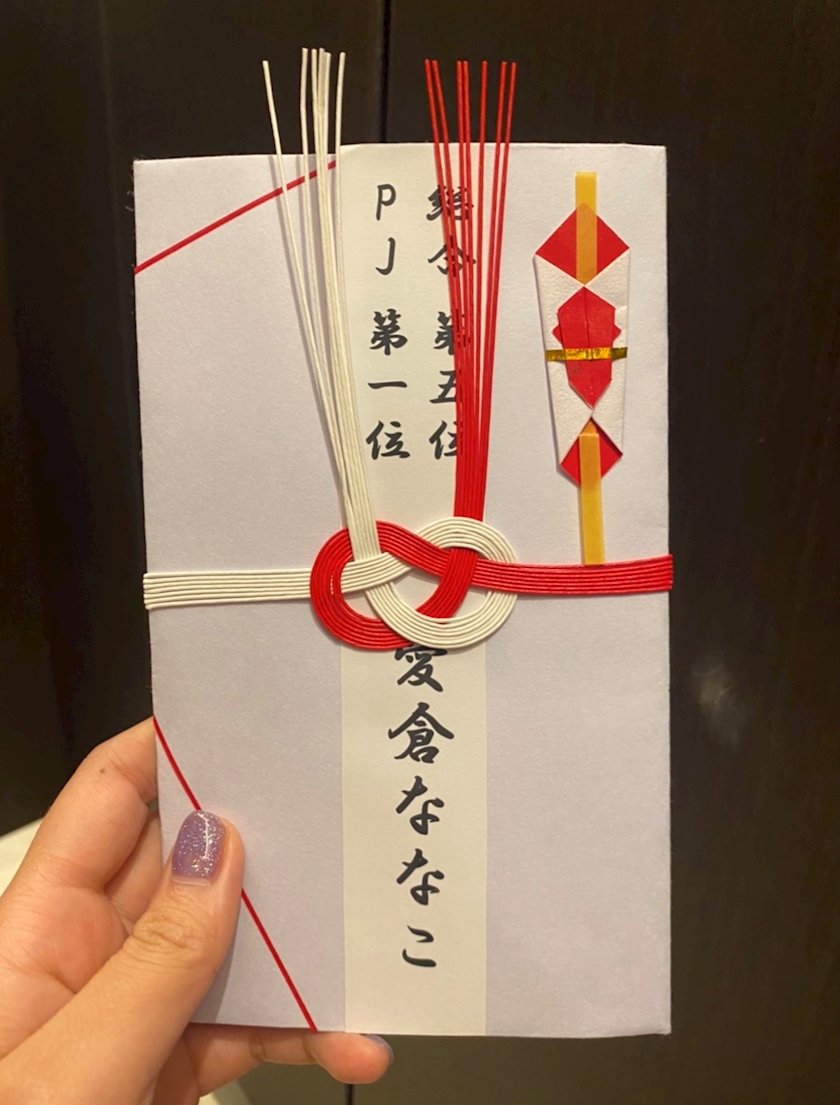 総合 第五位
PJ 第一位
愛倉ななこ